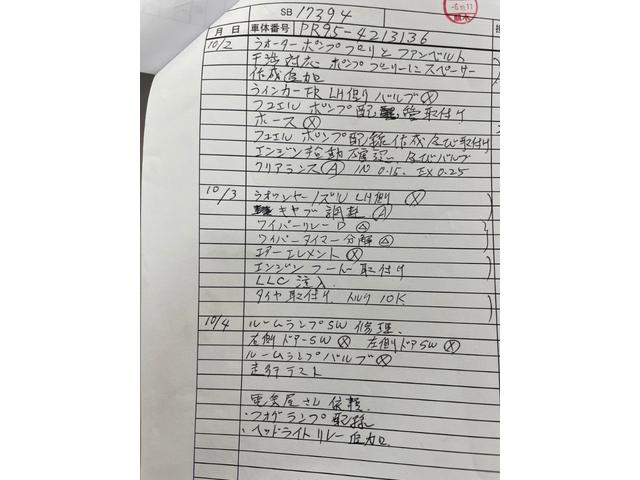 SB 17394
月 日 車体番号 PR95-4213136
10/2 ウォーターポンププーリとファンベルト
干渉対応 ポンププーリーにスペーサー
作成追加
ウィンカーFR LH側バルブ Ⓧ
フュエルポンプ配管取付け
ホース Ⓧ
フュエルポンプ配線作成及び取付け
エンジン始動確認、及びバルブ
クリアランス Ⓐ IN 0.15. EX 0.25
10/3 ウオッシャーノズルLH側 Ⓧ
キャブ調整 Ⓐ
ワイパーリレー
ワイパータイマー分解
エアーエレメント Ⓧ
エンジンフード取付け
LLC 注入
タイヤ取付け トルク 10K
10/4 ルームランプSW修理.
右側ドアーSW Ⓧ 左側ドアSW Ⓧ
ルームランプバルブ Ⓧ
走行テスト
電気屋さん依頼.
・フォグランプ配線
・ヘッドライトリレー追加.